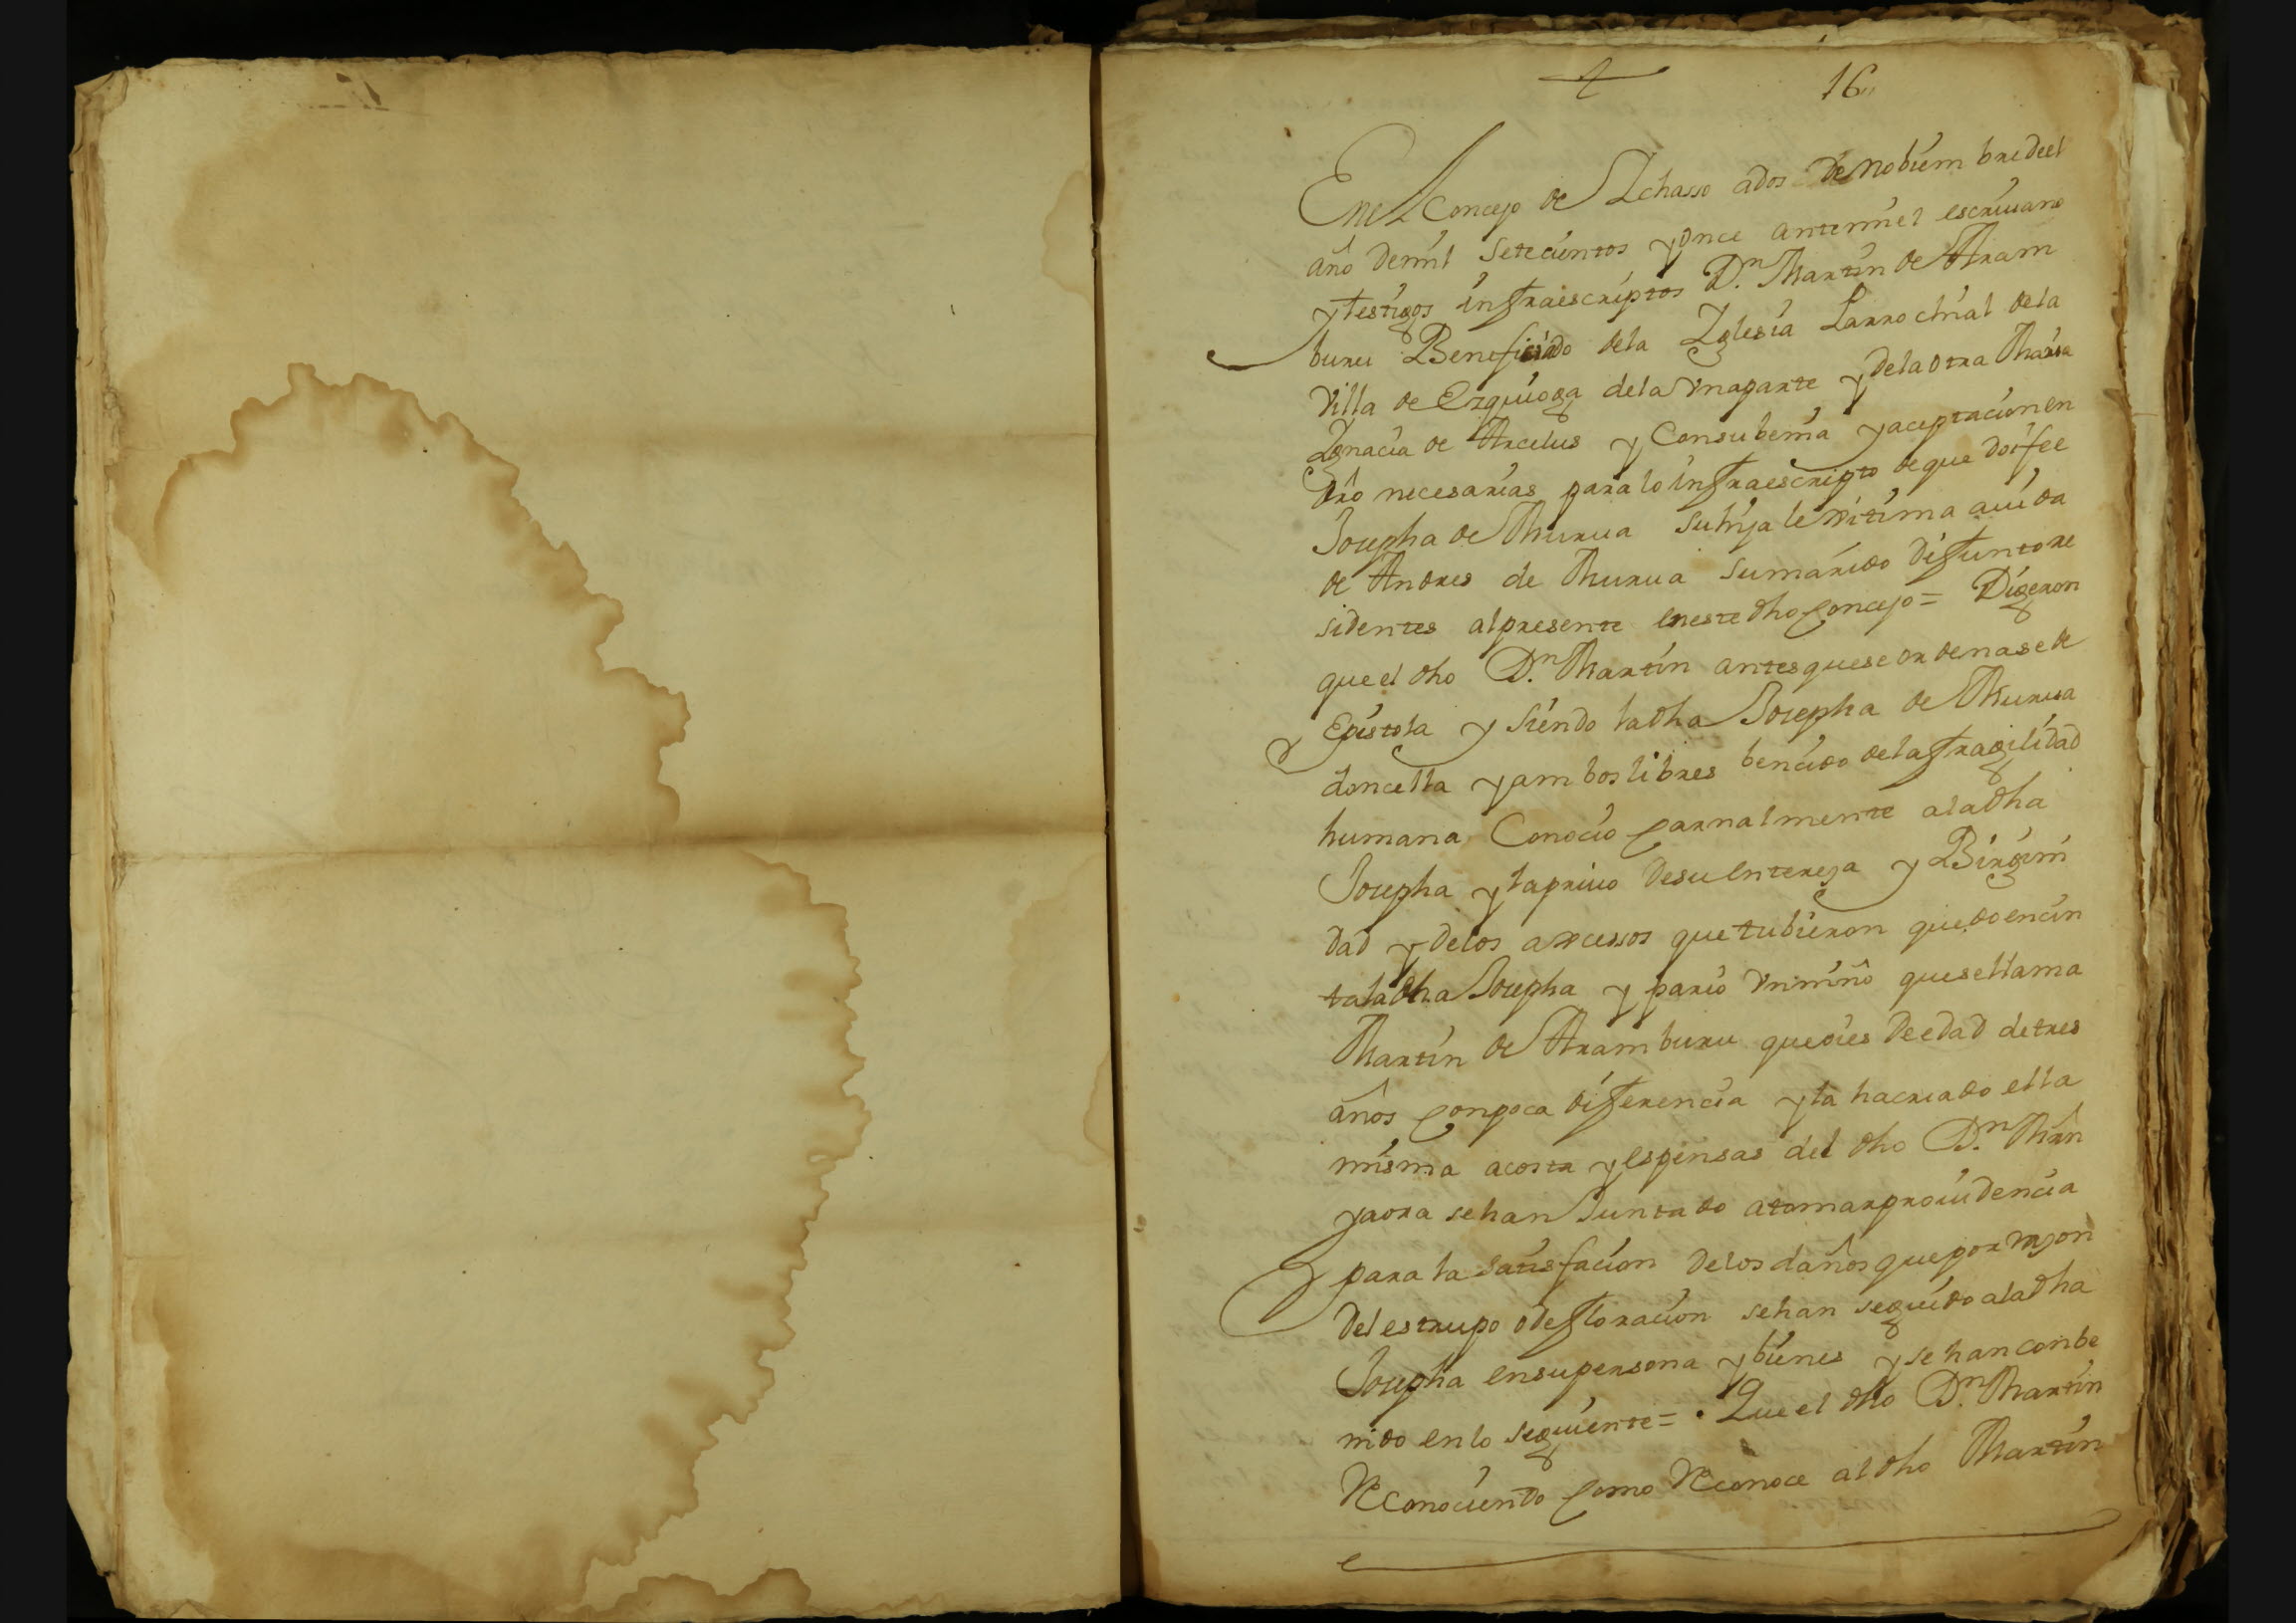 16
En el Concejo de Ychasso a dos de Nobiembre de el
año de mil setecientos y once ante mi el escriuano
y testigos infraescriptos Dn. Martin de Aram
buru Beneficiado de la Yglesia Parrochial de la
Villa de Ezquioga de la vna parte y de la otra Maria
Ygnacia de Arcelus y Con su benia y aceptacion en
dro necesarias para lo infraescripto de que doi fee
Josepha de Murua su hija lexitima auida
de Andres de Murua su marido difunto re
sidentes al presente en este dho Concejo = Digeron
que el dho Dn. Martin antes que se ordenase de
Epistola y siendo la dha Josepha de Murua
doncella y ambos libres bencido de la fragilidad
humana Conocio Carnalmente a la dha
Josepha y la priuo de su entereza y Birgini
dad y de los axcessos que tubieron quedo encin
ta la dha Josepha y pario vn niño que se llama
Martin de Aramburu que oi es de edad de tres
años Con poca diferencia y la ha criado ella
misma a costa y espensas del dho Dn. Mrn
y aora se han Juntado a tomar prouidencia
para la satisfacion de los daños que por razon
del estrupo o defloracion se han seguido a la dha
Josepha en su persona y bienes y se han conbe
nido en lo seguiente = Que el dho Dn. Martin
Reconociendo Como Reconoce al dho Martin